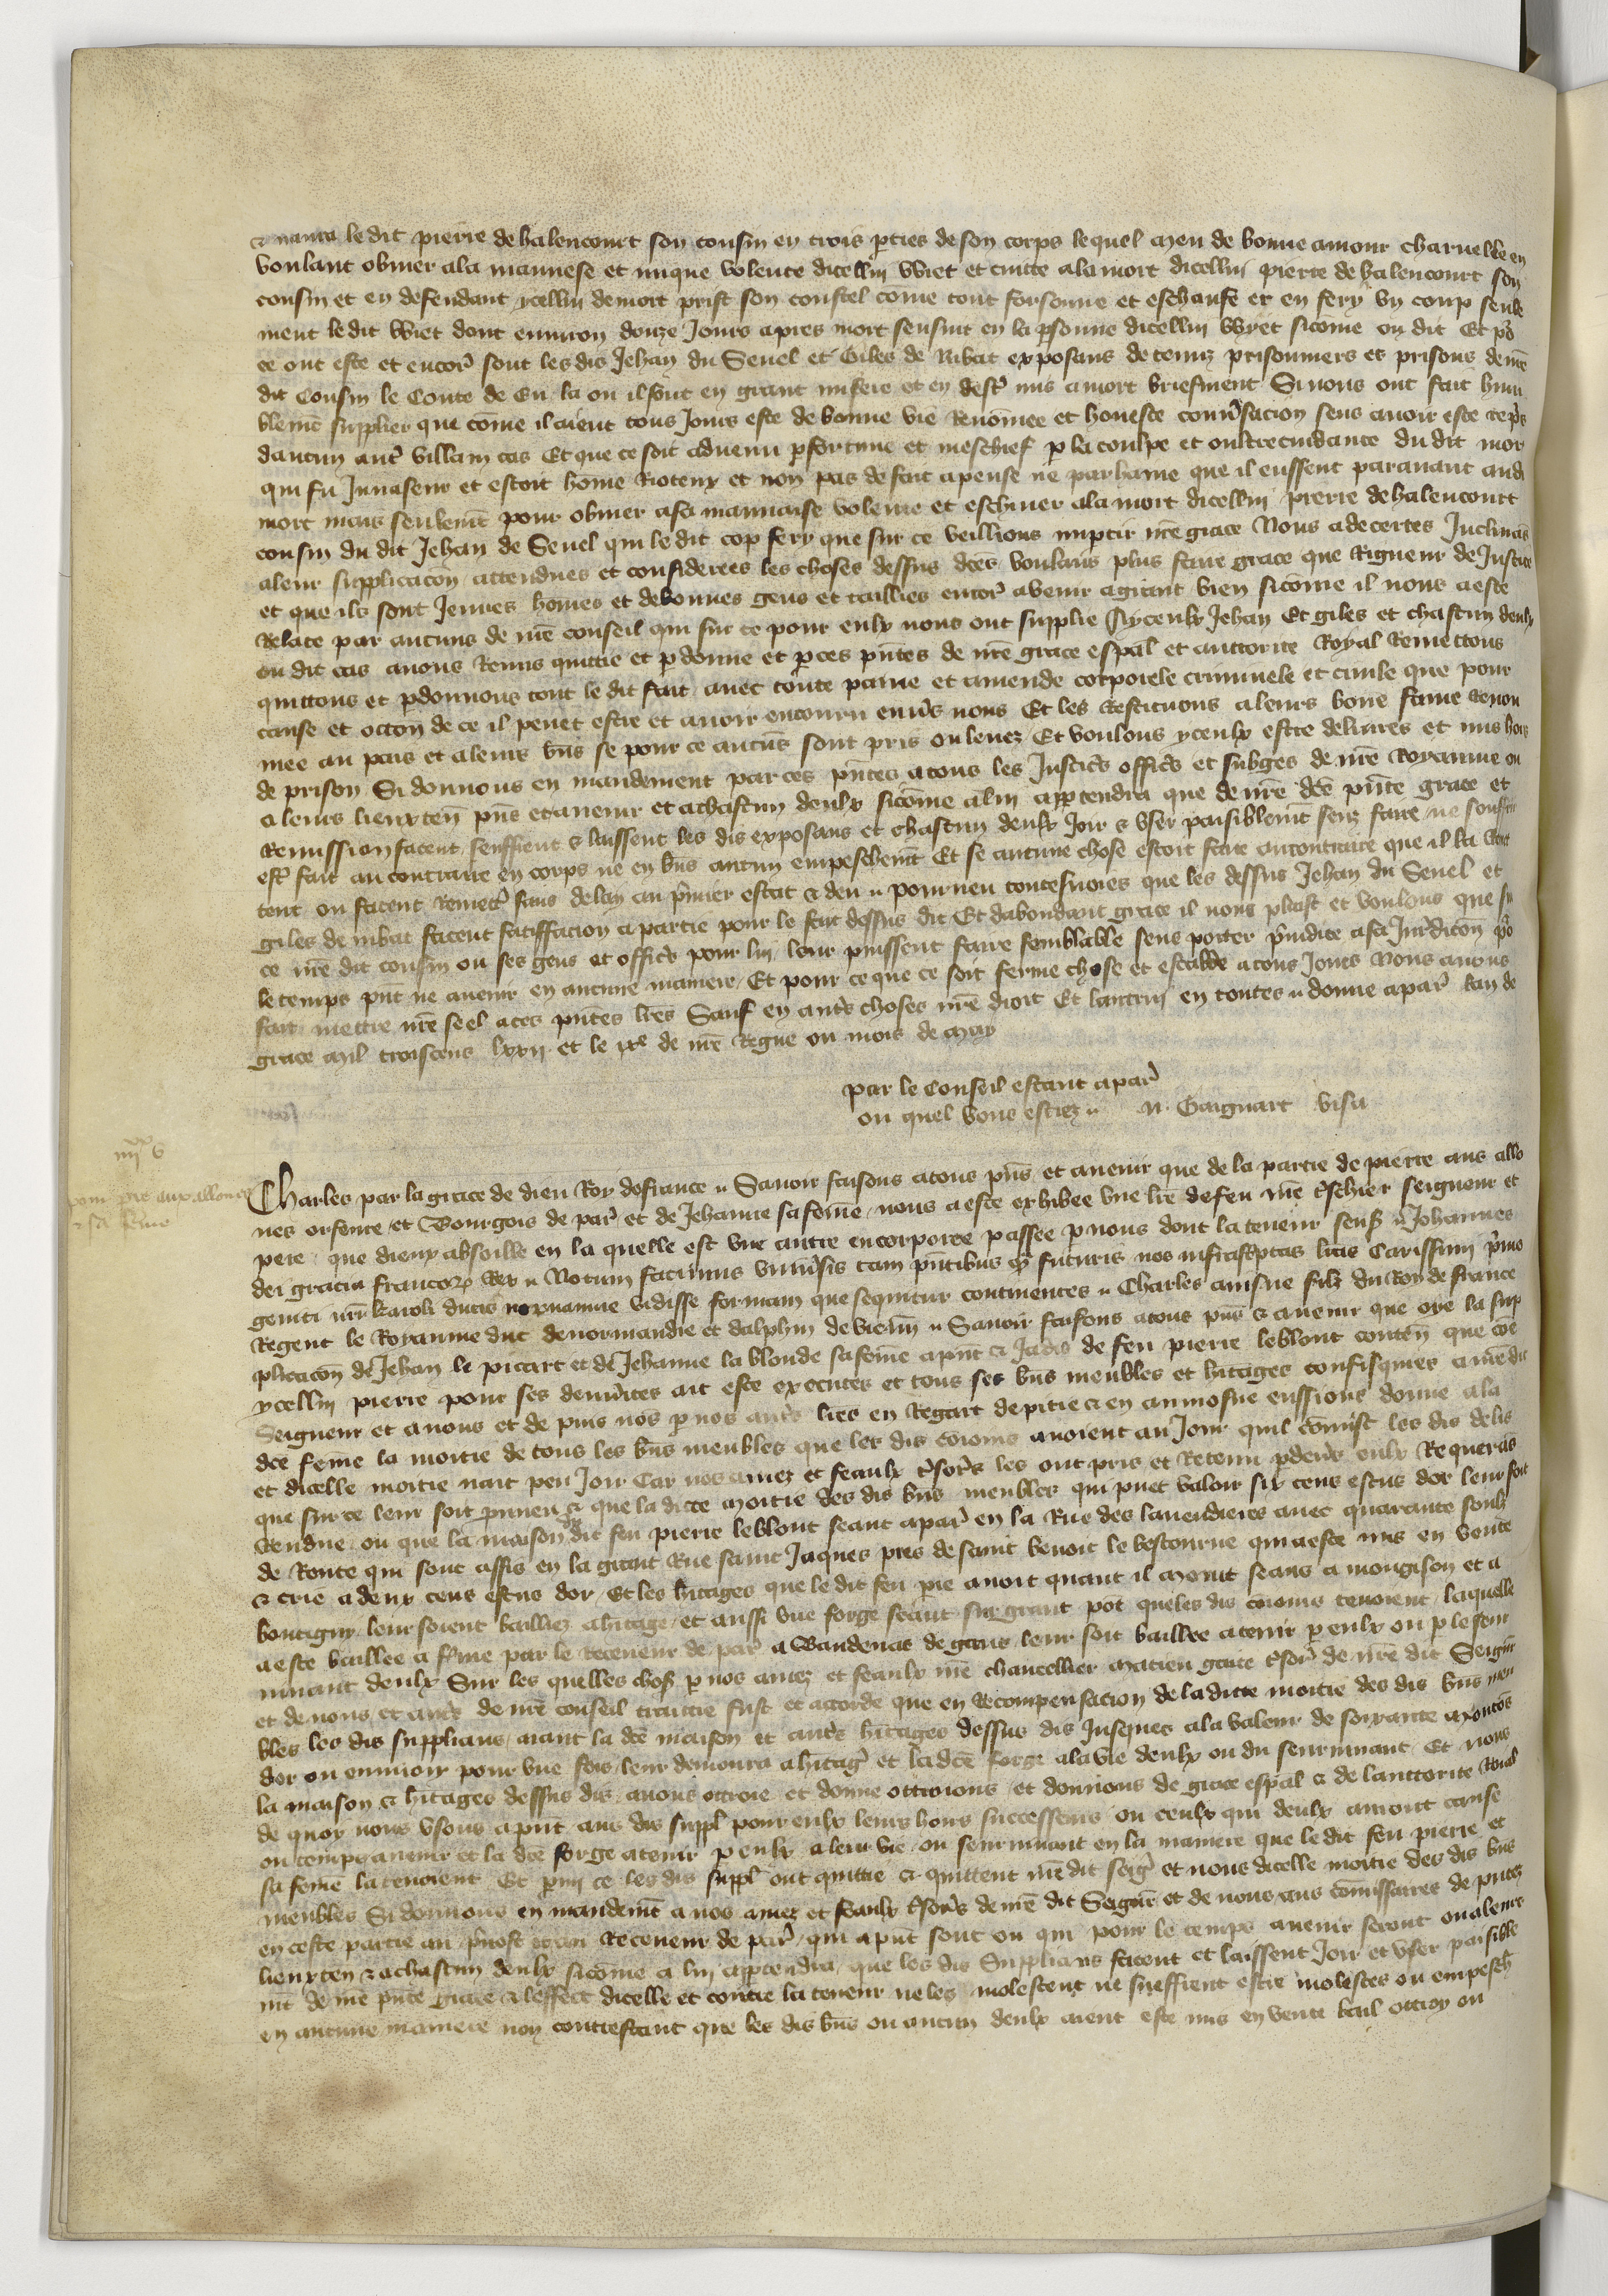 & navra ledit pierre de halencourt son cousin en trois pties de son corps lequel meu de bonne amour charnelle en
voulant obvier ala mauvese et inique volente dicellui Wiet et evitee ala mort dicellui pierre de halencourt son
cousin et en defendant ycellui demort prist son coustel come tout forsenne et eschaufe et en fery un coup seule
ment ledit Wiet dont environ douze Jours apres mort sensuit en la psonne dicellui Wyet sicome on dit Et po
ce ont este et encor sont les dis Jehan du Seuel et Giles de Nibat exposans detenuz prisonniers es prisons de nre
dit Cousin le Conte de Eu la ou il sont en grant misere et en destr mis a mort briefment Si nous ont fait hum
blemt supplier que come il aient tous Jours este de bonne vie Renomee et honeste conversacion sens avoir este repris
daucun autr villain cas Et que ce soit advenu pfortune et meschief p la coulpe et oultrecuidance du dit mor
qui fu Invaseur et estoit home Rioteux et non pas de fait apense ne par hayne que il eussent paravant audit
mort mais seulemt pour obvier asa mauvaise volente et eschiver ala mort dicellui pierre de halencourt
cousin du dit Jehan de Seuel qui le dit cop fery que sur ce veillions impartir nre grace Nous adecertes Inclinans
aleur supplicacon attendues et considerees les choses dessus dces voulans plus faire grace que Rigueur de Justice
et que ils sont Jeunes homes et debonnes gens et taillies encor avenir agrant bien sicome il nous a este
Relate par aucuns de nre conseil qui sur ce pour eulx nous ont supplie Ayceulx Jehan Et giles et chascun deulx
ou dit cas avons Remis quittie et pdonne et p ces pntes de nre grace espal et auttorite Royal Remettons
quittons et pdonnons tout le dit fait avec toute paine et amende corporele criminele et civile que pour
cause et occon de ce il peuet estre et avoir encouru envs nous Et les Restituons a leurs bone fame Renom
mee au pais et a leurs bns se pour ce aucuns sont pris ou levez Et voulons yceulx estre delivres et mis hors
de prison Si donnons en mandement par ces pntes a tous les Justics offics et subges de nre Royaume ou
a leurs lieuxten pns et avenir et achascun deulx sicome alui apptendra que de nre dce pnte grace et
Remission facent seuffrent & laissent les dis exposans et chascun deulx Joir & user paisiblemt senz faire ne souffrir
estr fait au contraire en corps ne en bns aucun empeschemt Et se aucune chose estoit faite aucontraire que il la Remet
tent ou facent Remetr sans delay au pmier estat & deu pourveu toutesvoies que les dessus Jehan du Seuel et
giles de nibat facent satiffacion a partie pour le fait dessus dit Et dabondant grace il nous plaist et voulons que sur
ce nre dit cousin ou ses gens et offics pour lui leur puissent faire semblable sens porter piudice asa Juridicon po
le temps pnt ne avenir en aucune maniere Et pour ce que ce soit ferme chose et estable a tous Jours Nous avons
fait mettre nre seel aces pntes lres Sauf en autrs choses nre droit Et lautrui en toutes donne apar lan de
grace mil troiscens lxxii et le ixe de nre Regne ou mois de may
par le Conseil estant a par
ou quel vous estiez N. Gaignart visa
iiijxx v
pour pre aux allones
& sa feme
Charles par la grace de dieu Roy de france Savoir faisons atous pns et avenir que de la partie de pierre aus allo
nes orfevre et Bourgois de par et de Jehanne sa feme nous a este exhibee une lre de feu nre tschier seigneur et
pere que dieux absoille en la quelle est une autre encorporee passee p nous dont la teneur sensuit Johannes
dei gracia francor Rex Notum facimus universis tam pntibus q futuris nos infrascptas litas Carissimi pmo
geniti nri karoli ducis normannie vidisse formam que sequitur continentes Charles ainsne filz du Roy de france
Regent le Royaume duc denormandie et dalphin de vienn Savoir faisons atous pns & avenir que oye la sup
plicacon de Jehan le picart et de Jehanne la blonde sa feme apnt & Jadis de feu pierre leblont conten que coe
ycellui pierre pour ses demerites ait este executes et tous ses bns meubles et hitages confisquies a nredit
Seigneur et a nous et de puis nos p nos autrs lres en Regart de pitie & en aumosne eussions donne ala
dce feme la moitie de tous les bns meubles que les dis coioins avoient au Jour quil comist les dis deliz
et dicelle moitie nait peu Joir Car nos amez et feaulx tsors les ont pris et Retenu pdevs eulx Requerans
que sur ce leur soit pourveu & que la dicte moitie des dis bns meubles qui puet valoir six cens escus dor leur soit
Rendue ou que la maison du dit feu pierre leblont seant apar en la Rue des lavendieres avec quarante soulz
de Rente qui sont assis en la grant Rue saint Jaques pres de saint benoit le bestourne qui a este mis en vente
& crie a deux cens escus dor Et les hitages que le dit feu pre avoit quant il morut seans a mongison et a
boutigny leur soient bailliez a hitage et aussi une forge seant sur grant pot queles dis coioins tenoient laquelle
a este baillee a fme par le Receveur de par a Vandenat de gaus leur soit baillee a tenir p eulx ou p le sour
vivant deulx Sur les quelles chos p nos amez et feaulx nre chancellier matieu gaite tsor de nre dit Seignr
et de nous et autrs de nre conseil traittie fust et accorde que en Recompensacion de la dicte moitie des dis bns meu
bles les dis supplians aiant la dce maison et autrs hitages dessus dis Jusques ala valeur de soixante moutons
dor ou environ pour une fois leur demoura a hitag et la dce forge ala vie deulx ou du seurvivant Et nous
la maison & hitages dessus dis avons ottroie et donne ottroions et donnons de grace espal & de lauttorite Roial
de quoy nous usons apnt aus dis suppl pour eulx leurs hoirs successeurs ou ceulx qui deulx auront cause
ou temps avenir et la dce forge a tenir p eulx a leur vie ou seurvivant en la maniere que le dit feu pierre et
sa feme la tenoient Et pmi ce les dis suppl ont quittie & quittent nre dit seigr et nous dicelle moitie des dis bns
meubles Si donnons en mandemt a nos amez et feaulx tsors de nre dit Seignr et de nous aus comissaires de putez
en ceste partie au pvost et au Receveur de par qui apnt sont ou qui pour le temps avenir seront ou a leurs
lieuxten & achascun deulx sicome a lui apptendra que les dis Supplians facent et laissent Joir et user paisible
mt de nre pnte grace & leffect dicelle et contre la teneur ne les molestent ne sueffrent estre molestes ou empesch
en aucune maniere non contrestant que les dis bns ou aucun deulx aient este mis en vente bail ottroy ou